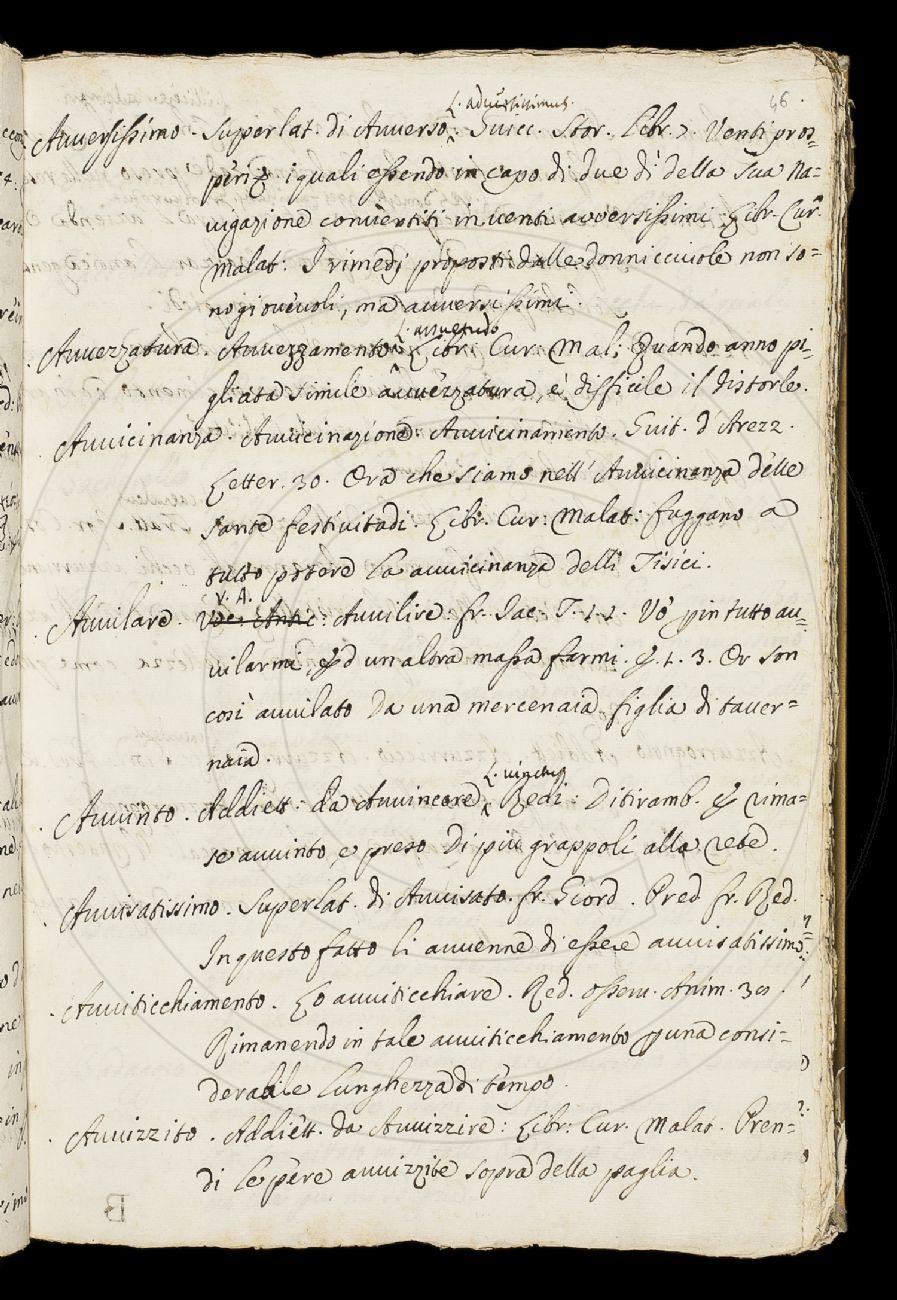 46.
L. adversissimus.
Avversissimo. Superlat: di Avverso: Guicc. Stor. Libr. 7. Venti pros=
peri, e iguali essendo in capo di due dì della sua na=
vigazione convertiti in venti avversissimi. Libr. Cur.
malat: I rimedj proposti dalle donnicciuole non so=
no giovevoli, ma avversissimi.
L. assuetudo
Avvezzatura. Avvezzamento. Libr: Cur: Mal: Quando anno pi=
gliata simile avvezzatura, è difficile il distorle.
Avvicinanza. Avvicinazione: Avvicinamento. Guit. d'Arezz.
Letter. 30. Ora che siamo nell'Avvicinanza delle
sante festivitadi. Libr. Cur: Malat: fuggano a
tutto potere la avvicinanza delli Tisici.
V. A.
Avvilare. Voc: Antic: Avvilire: fr. Iac: T. 1. 1. Vò p in tutto av=
vilarmi, ed un altra massa farmi. 3. Or son
così avvilato Da una mercenaia figlia di taver=
naia.
L. vinctus
Avvinto. Addiett: da Avvincere, Redi: Ditiramb. rima=
se avvinto, e preso Di più grappoli alla rete.
Avvisatissimo. Superlat. di Avvisato. fr. Giord. Pred. fr. Red.
In questo fatto li avvenne di essere avvisatissimo
Avviticchiamento. Lo avviticchiare. Red. osserv. Anim. 30
Rimanendo in tale avviticchiamento p una consi=
derabile lunghezza di tempo.
Avvizzito. Addiett. da Avvizzire: Libr: Cur. Malat. Pren=
di le pere avvizzite sopra della paglia.